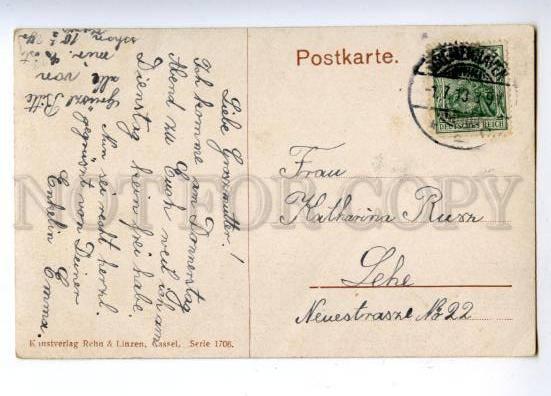 Postkarte.
BREMERHAVEN
DEUTSCHES REICH
Liebe Grossmutter!
Ich komme am Donnerstag
Abend zu Euch weil ich am
Dienstag kein frei habe.
Nun sei recht herzl.
gegrüsst von Deiner
Enkelin Emma.
Bitte
alle von
mir.
schon
Frau
Katharina Rusz
Lehe
Neuestrasze No 22
Kunstverlag Rehn & Linzen, Kassel. Serie 1706.
NOT FOR COPY